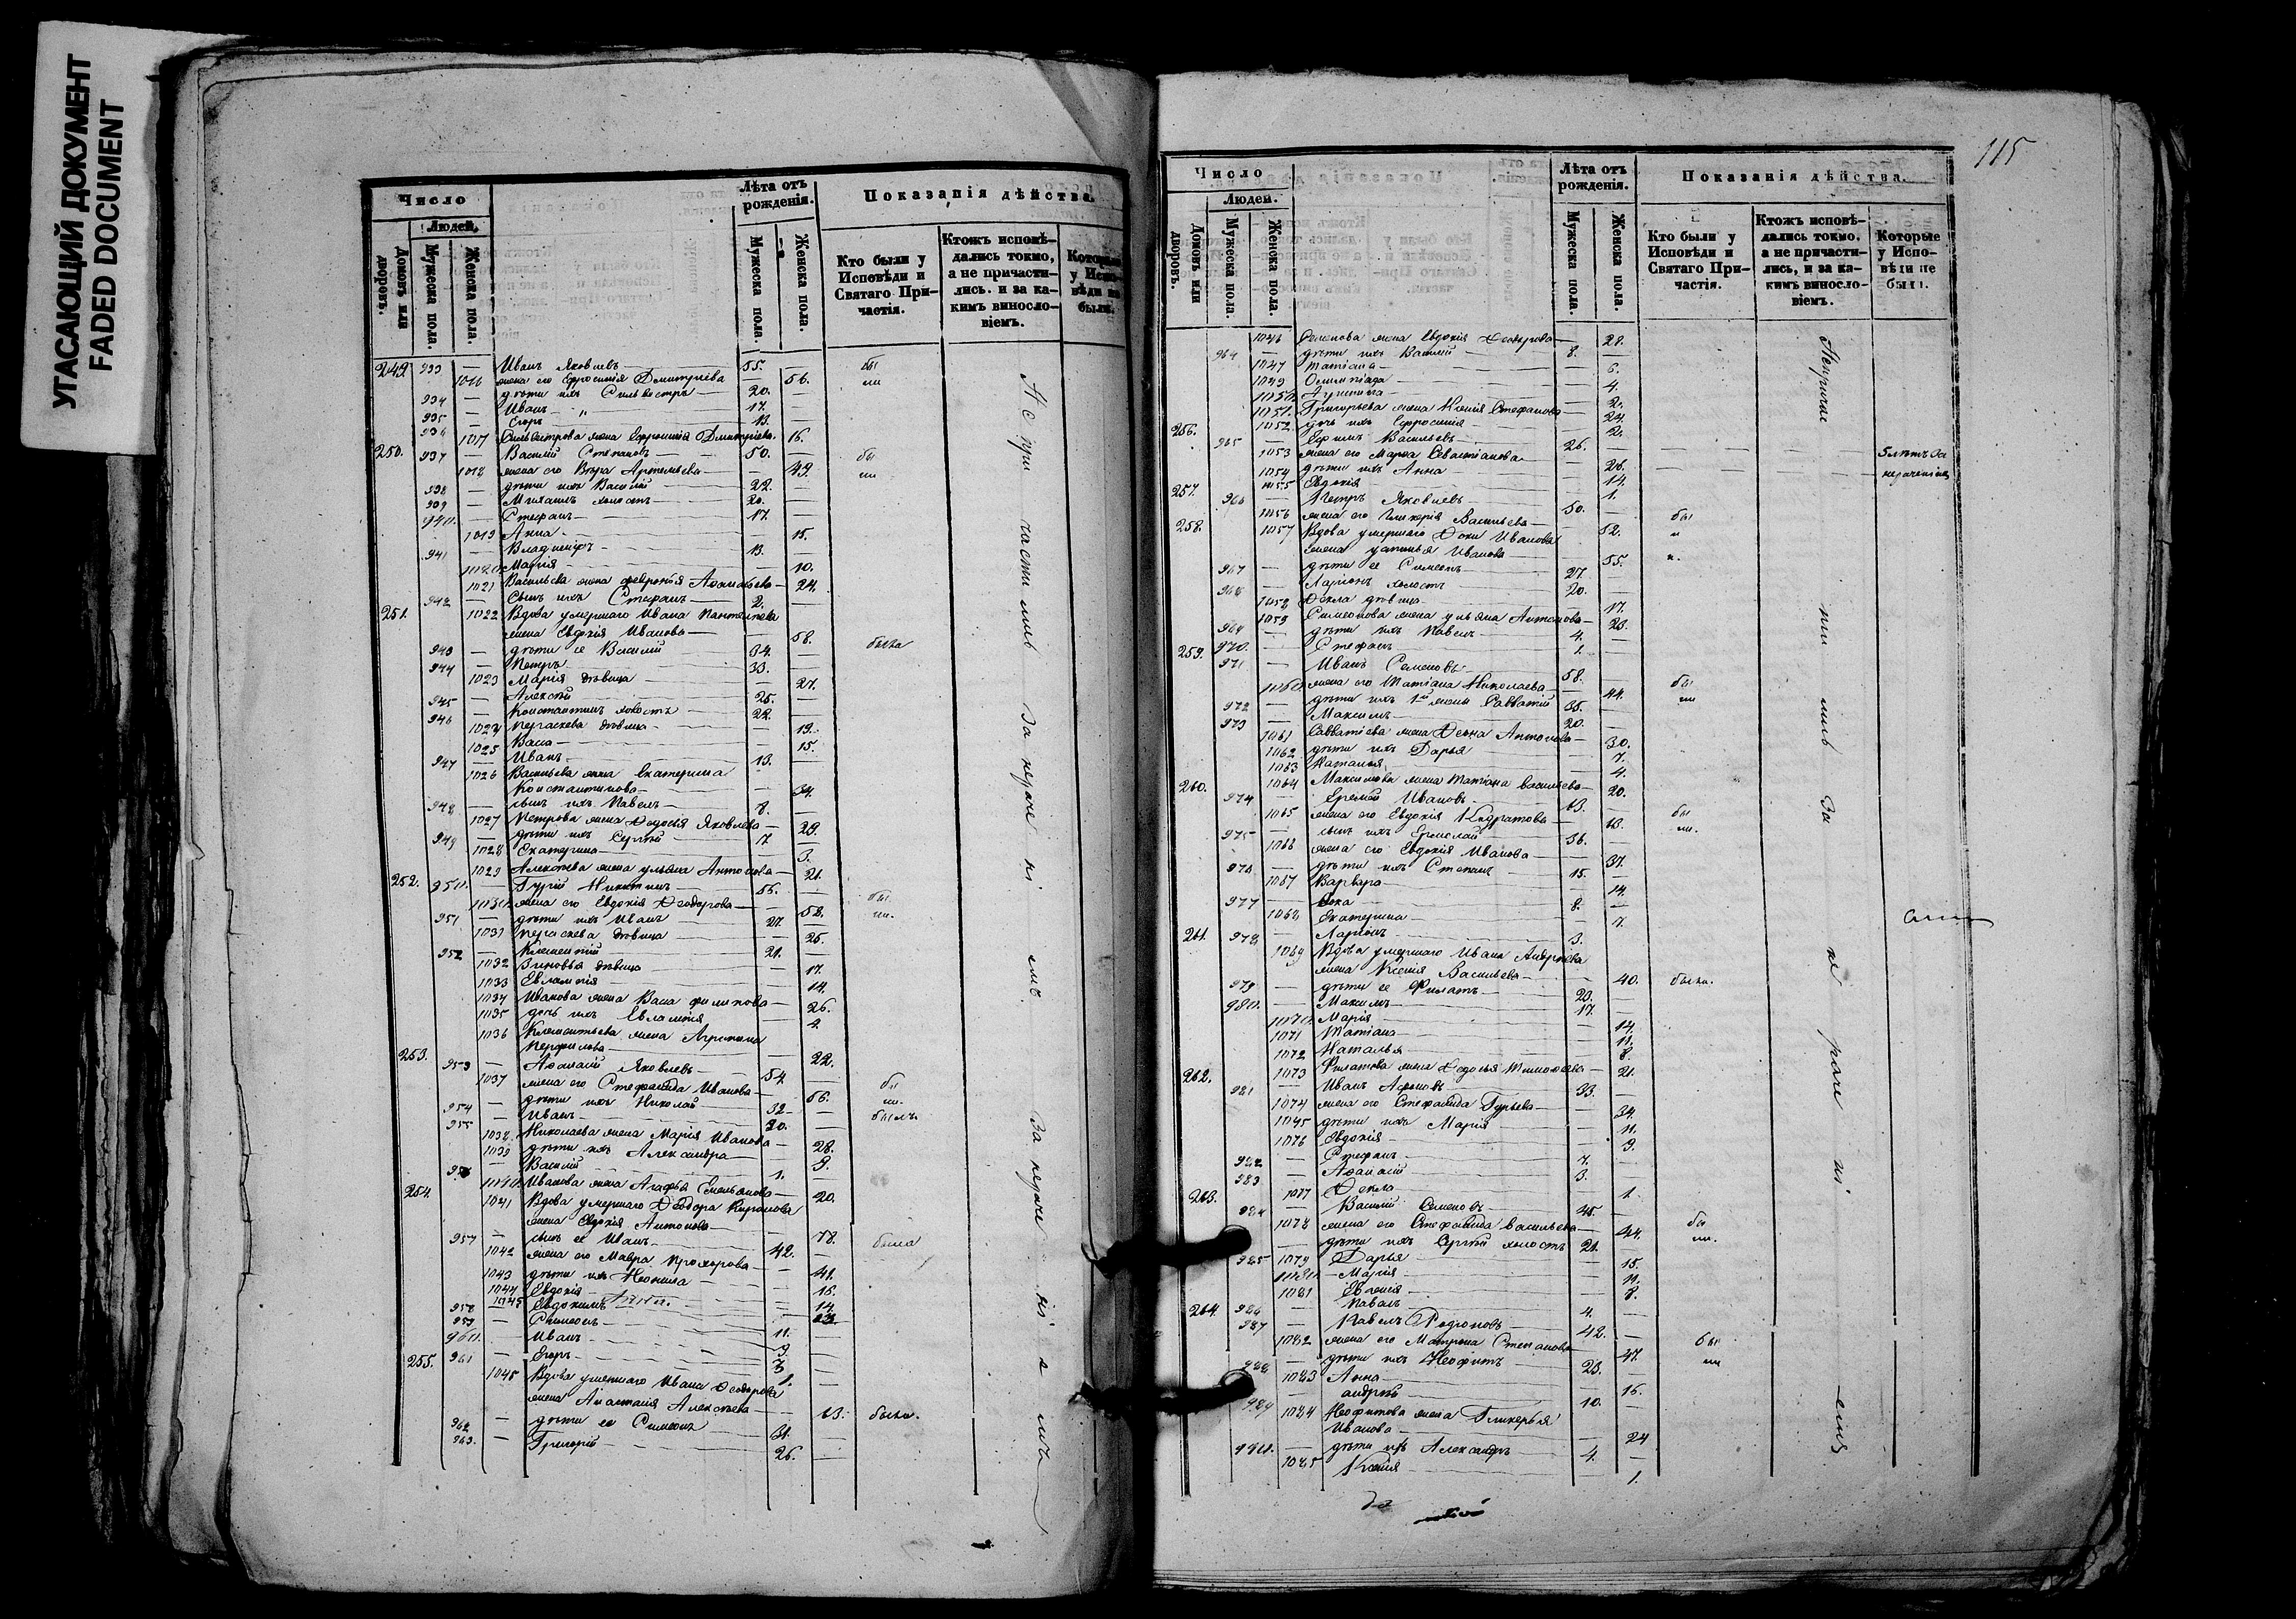 УГАСАЮЩИЙ ДОКУМЕНТ
FADED DOCUMENT
Число
Людей.
Домовъ или дворовъ.
Мужеска пола.
Женска пола.
Лѣта отъ рожденія.
Мужеска пола.
Женска пола.
Показанія дѣйства.
Кто были у Исповѣди и Святаго При-частія.
Ктожъ исповѣ-дались токмо, а не причасти-лись. и за ка-кимъ виносло-віемъ.
Которые у Испо-вѣди не были.
249. 933 — Иванъ Яковлевъ — 55. — бы
1016 жена его Ефросинія Дмитріева — 56. ли
934 — дѣти ихъ Сильвестръ — 20. —
935 — Иванъ — 17. —
936 — Егоръ — 13. —
1017 Сильвестрова жена Ефросинія Дмитріева 16.
250. 937 — Василій Степановъ — 50. — бы
1018 жена его Вѣра Артемьева — 49. ли
938 — дѣти ихъ Василій — 22.
939 — Михаилъ холостъ — 20.
940. — Стефанъ — 17. —
1019 Анна — 15.
941 — Владиміръ — 13. —
1020. Марія — 10.
1021 Васильева жена Февронія — 24.
942 — сынъ ихъ Стефанъ — 2. —
251. 1022 Вдова умершаго Ивана
жена Евдокія Иванова — 58. была
943 — дѣти ея Василій — 34. —
944 — Петръ — 33. —
1023 Марія дѣвица — 27.
945 — Алексѣй — 25. —
946 — Константинъ холостъ — 22. —
1024 Параскева дѣвица — 19.
1025 Васса — 15.
947 — Иванъ — 13. —
1026 Васильева жена Екатерина
Константинова — 34.
948 — сынъ ихъ Павелъ — 8. —
1027 Петрова жена Ѳедосія Яковлева — 29.
949 — дѣти ихъ Сергѣй —
1028 Екатерина — 3.
1029 Алексѣева жена Ульяна Антонова — 21.
252. 950. — Гурій Никитинъ — 56. — бы
1030. жена его Евдокія Ѳеодорова — 58. ли.
951 — дѣти ихъ Иванъ — 27. —
1031 Параскева дѣвица — 25.
952 — Климентій — 21. —
1032 Зиновья дѣвица — 17.
1033 Евлампія — 14.
1034 Иванова жена Васса Филипова — 26.
1035 дочь ихъ Евлампія — 4.
1036 Климентьева жена Агрипина
Перфилова — 22.
253. 953 — Аѳанасій Яковлевъ — 54. — бы
1037 жена его Стефанида Иванова — 56. ли.
954 — дѣти ихъ Николай — 32 — былъ
955 — Иванъ — 20. —
1038. Николаева жена Марія Иванова — 28.
1039 дѣти ихъ Александра — 9.
956 — Василій — 1. —
1040. Иванова жена Агафья Емельянова — 20.
254. 1041 Вдова умершаго Ѳеодора
жена Евдокія Антонова — 78. была
957 — сынъ ея Иванъ — 42. —
1042 жена его Мавра Прохорова — 41.
1043 дѣти ихъ Неонила — 16.
1044 Евдокія — 14.
958 — Симеонъ — 11.
959 — Иванъ — 9.
961 — Егоръ
255. 1045 Вдова умершаго Ивана Ѳеодорова
жена Анастасія Алексѣева — 63. была.
962 — дѣти ея Симеонъ — 31.
963. — Григорій — 26. —
Не при части лись За нераче ні емъ. За нераче ні емъ
115
Число
Людей.
Домовъ или дворовъ.
Мужеска пола.
Женска пола.
Лѣта отъ рожденія.
Мужеска пола.
Женска пола.
Показанія дѣйства.
Кто были у Исповѣди и Святаго При-частія.
Ктожъ исповѣ-дались токмо. а не причасти-лись, и за ка-кимъ винословіемъ.
Которые у Испо-вѣди не были.
1046 Семенова жена Евдокія Ѳеодорова — 28.
964 — дѣти ихъ Василій — 8. —
1047 Татіана — 6.
1049 Олимпіада — 4.
1050. Агрипина — 2.
1051. Григорьева жена Ксенія Стефанова — 24.
1052 дочь ихъ Ефросинія — 2.
256. 965 — Ефимъ Васильевъ — 26. — 5 лѣтъ За
1053 жена его Марѳа Севастіанова — 26. нераченіемъ
1054 дѣти ихъ Анна — 14.
1055 Евдокія — 1.
257. 966 — Петръ Яковлевъ — 50. — бы
1056 жена его Гликерія Васильева — 52. ли
258. 1057 Вдова умершаго Ѳоки Иванова
жена Иванова — 55.
967 — дѣти ея Симеонъ — 27. —
968 — Ларіонъ холостъ — 20. —
1058 Ѳекла дѣвица — 17.
1059 Симеонова жена Ульяна Антонова — 23.
969 — дѣти ихъ Павелъ — 4. —
970. — Стефанъ — 1. —
259. 971 — Иванъ Семеновъ — 58. — бы
1060. жена его Татіана Николаева — 44. ли
972 — дѣти ихъ 1й жены Савватій — 35. —
973 — Максимъ — 20. —
1061 Савватіева жена Антонова — 30.
1062 дѣти ихъ Дарья — 7.
1063 Наталья — 4.
1064 Максимова жена Татіана Васильева — 20.
260. 974 — Еремѣй Ивановъ — 63. — бы
1065 жена его Евдокія Кодратова — 63. ли.
975 — сынъ ихъ Ермолай — 36. —
1066 жена его Евдокія Иванова — 37.
976 — дѣти ихъ Степанъ — 15. —
1067 Варвара — 14.
977 — Ѳока — 8. —
1068 Екатерина — 7.
978 — Ларіонъ — 3. —
261. 1069 Вдова умершаго Ивана Андреева
жена Ксенія Васильева — 40. была.
979 — дѣти ея Филатъ — 23. —
980. — Максимъ — 17. —
1070. Марія — 14.
1071 Татіана — 11.
1072 Наталья — 8.
1073 Филатова жена Ѳедосья Тимоѳеева — 21.
262. 981 — Иванъ — 33. —
1074 жена его Стефанида Гурьева — 34.
1045 дѣти ихъ Марія — 11.
1076 Евдокія — 9.
982 — Стефанъ — 7. —
983 — Аѳанасій — 3. —
1077 Ѳекла — 1.
263. 984 — Василій Семеновъ — 45. — бы
1078 жена его Стефанида Васильева — 44. ли.
985 — дѣти ихъ Сергѣй холостъ — 21. —
1079 Дарья — 15.
1080. Марія — 11.
1081 Евгенія — 8.
986 — Павелъ — 4. —
264 987 — Павелъ Родіоновъ — 42. — бы
1082 жена его Матрона Степанова — 47. ли
988 — дѣти ихъ Неофитъ — 23. —
1083 Анна — 16.
989 — Андрей — 10. —
1084 Неофитова жена Гликерья
Иванова — 24
990. — дѣти ихъ Александръ — 4. —
1085 Ксенія — 1.
Непричас ти лись За не раче ні емъ